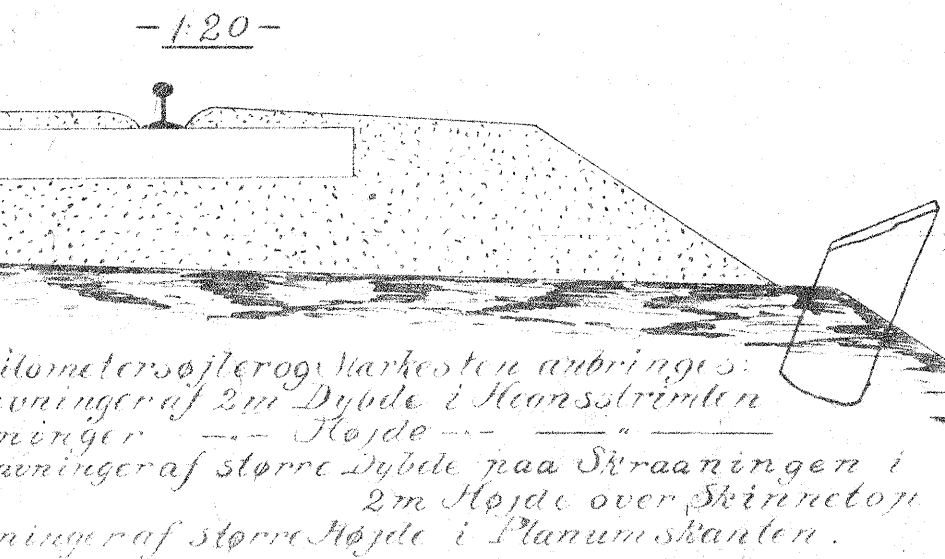 -1:20-
ilometersøjler og Markesten anbringes:
vninger af 2m Dybde i
ninger —"— Højde —"— — " —
avninger af større Dybde paa Skraaningen i
2m Højde over Skinnetop
ninger af større Højde i Planumskanten.